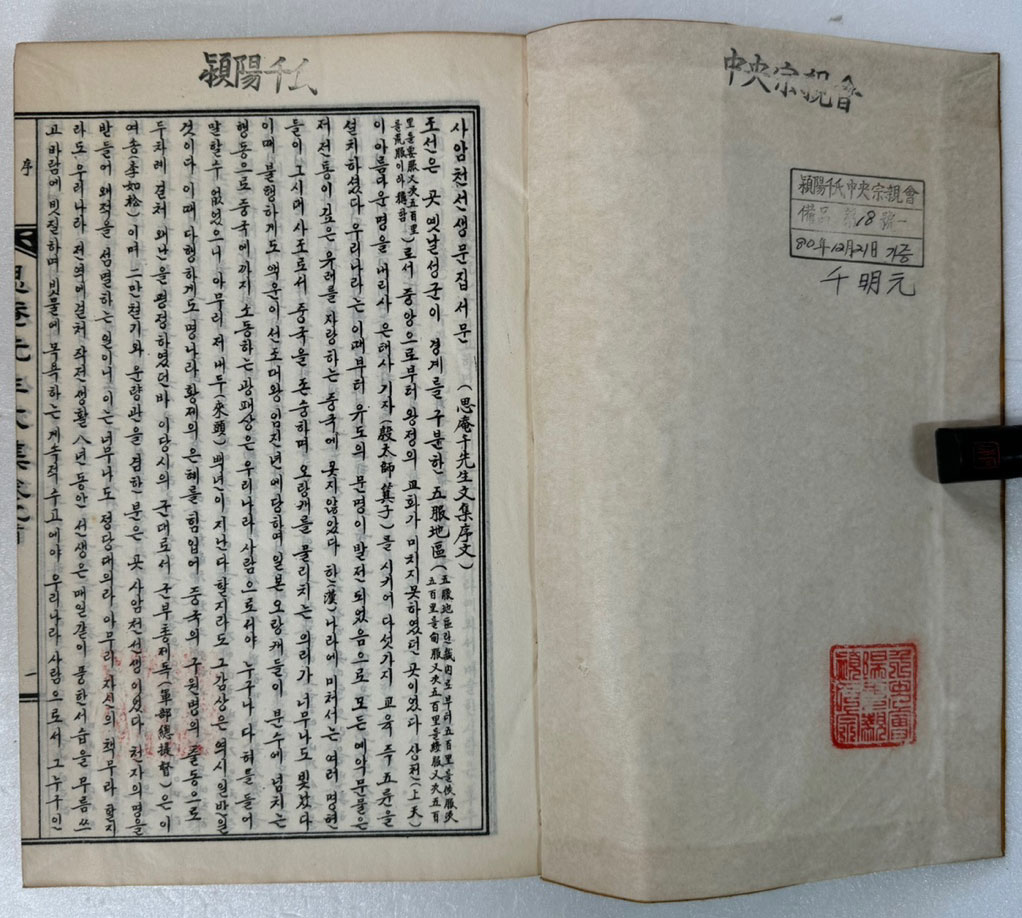 潁陽千氏
中央宗親會
潁陽千氏中央宗親會
備品 第18號
80年12月21日 기증
千明元
사암천선생문집서문 (思庵千先生文集序文)
王선은 곳 옛날성군이 경계를 구분한 五服地區(五服地區란畿内로부터五百里를侯服又次
五百里를甸服又次五百里를綏服又次五百
里를要服又次五百里
를荒服이라稱함)로서 중앙으로부터 왕정의 교화가 미치지못하였던 곳이였다 상천(上天)
이 아름다운 명을 내리사 은태사 기자(殷太師箕子)를 시키어 다섯가지 교육 즉 五륜을
설치하셨다 우리나라는 이때부터 유도의 문명이 발전되었음으로 모든 예악문물은
저 전통이깊은 유래를 자랑하는 중국에 못지않았다 한(漢)나라에 미처서는 여러 명현
들이 그시대 사조로서 중국을 존숭하며 오랑캐를 물리치는 의리가 너무나도 빛났다
이때 불행하게도 액운이 선조대왕 임진년에 당하여 일본 오랑캐들이 분수에 넘치는
행동으로 중국에까지 소동하는 광패상은 우리나라 사람으로서야 누구나 다 혀를들어
말할수 없었으니 아무리 저 내두(來頭) 백년이 지난다 할지라도 그감상은 역시 일반일
것이다 이때 다행하게도 명나라 황제의 은혜를 힘입어 중국의 구원병의 출동으로
두차례 걸처 왜난을 평정하였던바 이당시의 군대로서 군부총제독(軍部總提督)은 이
여송(李如松)이며 二만천기와 운량관을 겸한 분은 곳 사암천선생이였다 천자의 명을
받들어 왜적을 섬멸하는 일이니 이는 너무나도 정당대의라 아무리 자신의 책무라 할지
라도 우리나라 전역에걸처 작전생활 八년동안 선생은 매일같이 풍한서습을 무릅쓰
고 바람에 빗질하며 빗물에 목욕하는 계속적 수고에야 우리나라 사람으로서 그누구인
序
一